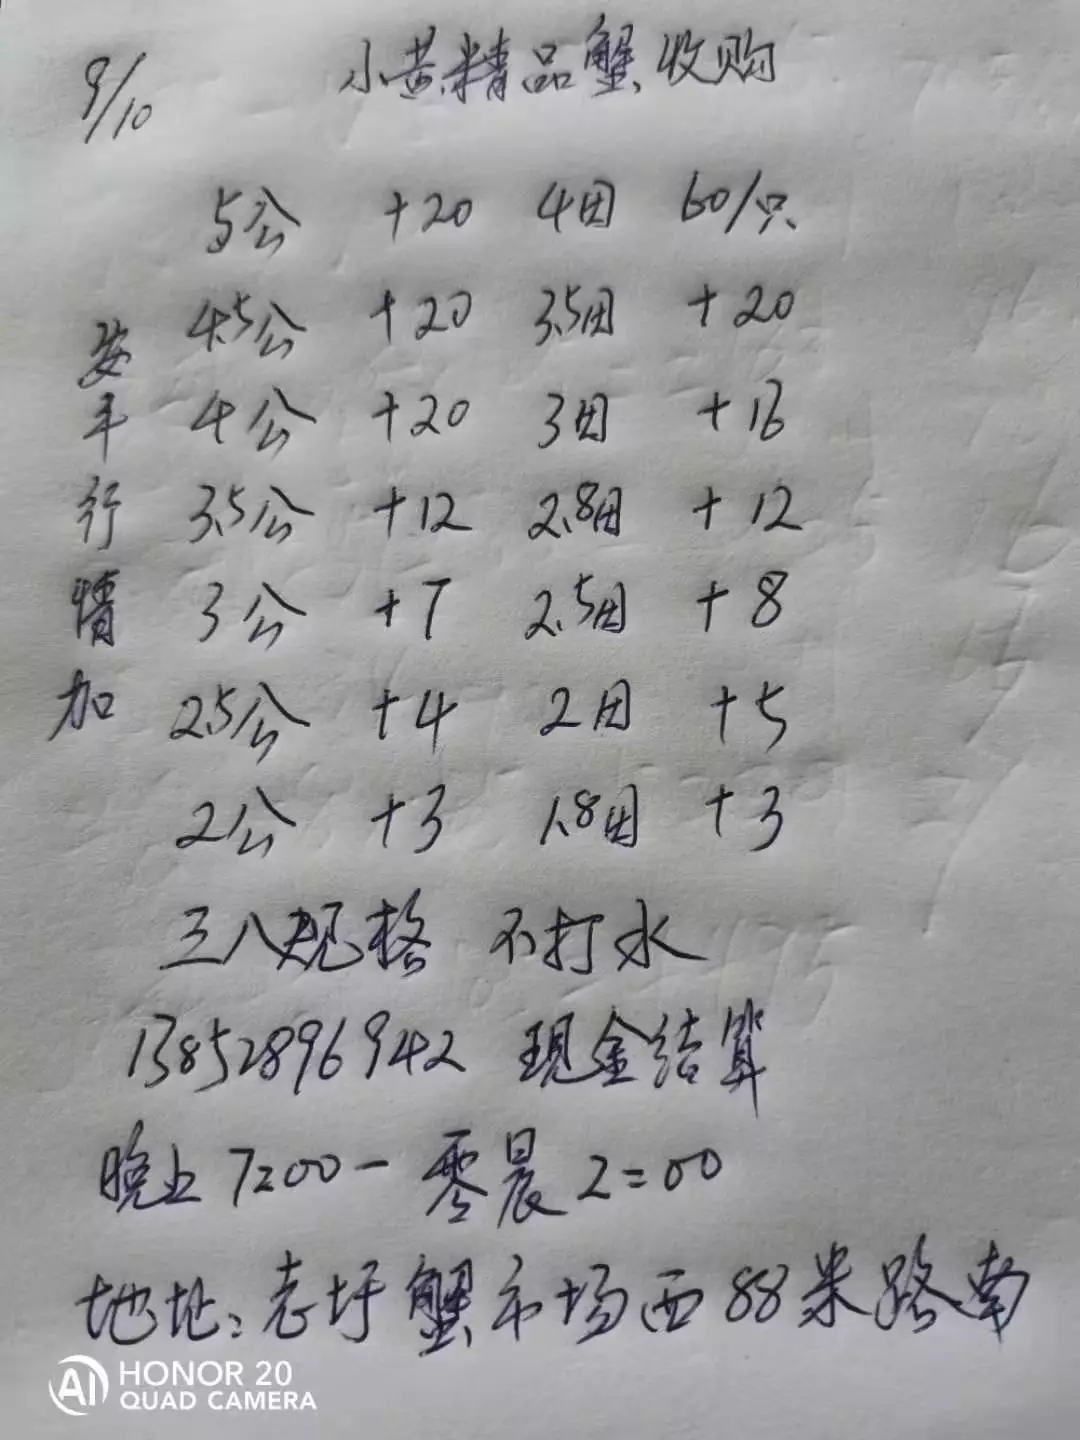 9/10 小黄精品蟹收购
5公 +20 4母 60/只
4.5公 +20 3.5母 +20
4公 +20 3母 +16
3.5公 +12 2.8母 +12
3公 +7 2.5母 +8
2.5公 +4 2母 +5
2公 +3 1.8母 +3
安丰行情加
三八规格 不打水
13852896942 现金结算
晚上7:00-零晨2:00
地址:老圩蟹市场西88米路南
AI HONOR 20
QUAD CAMERA